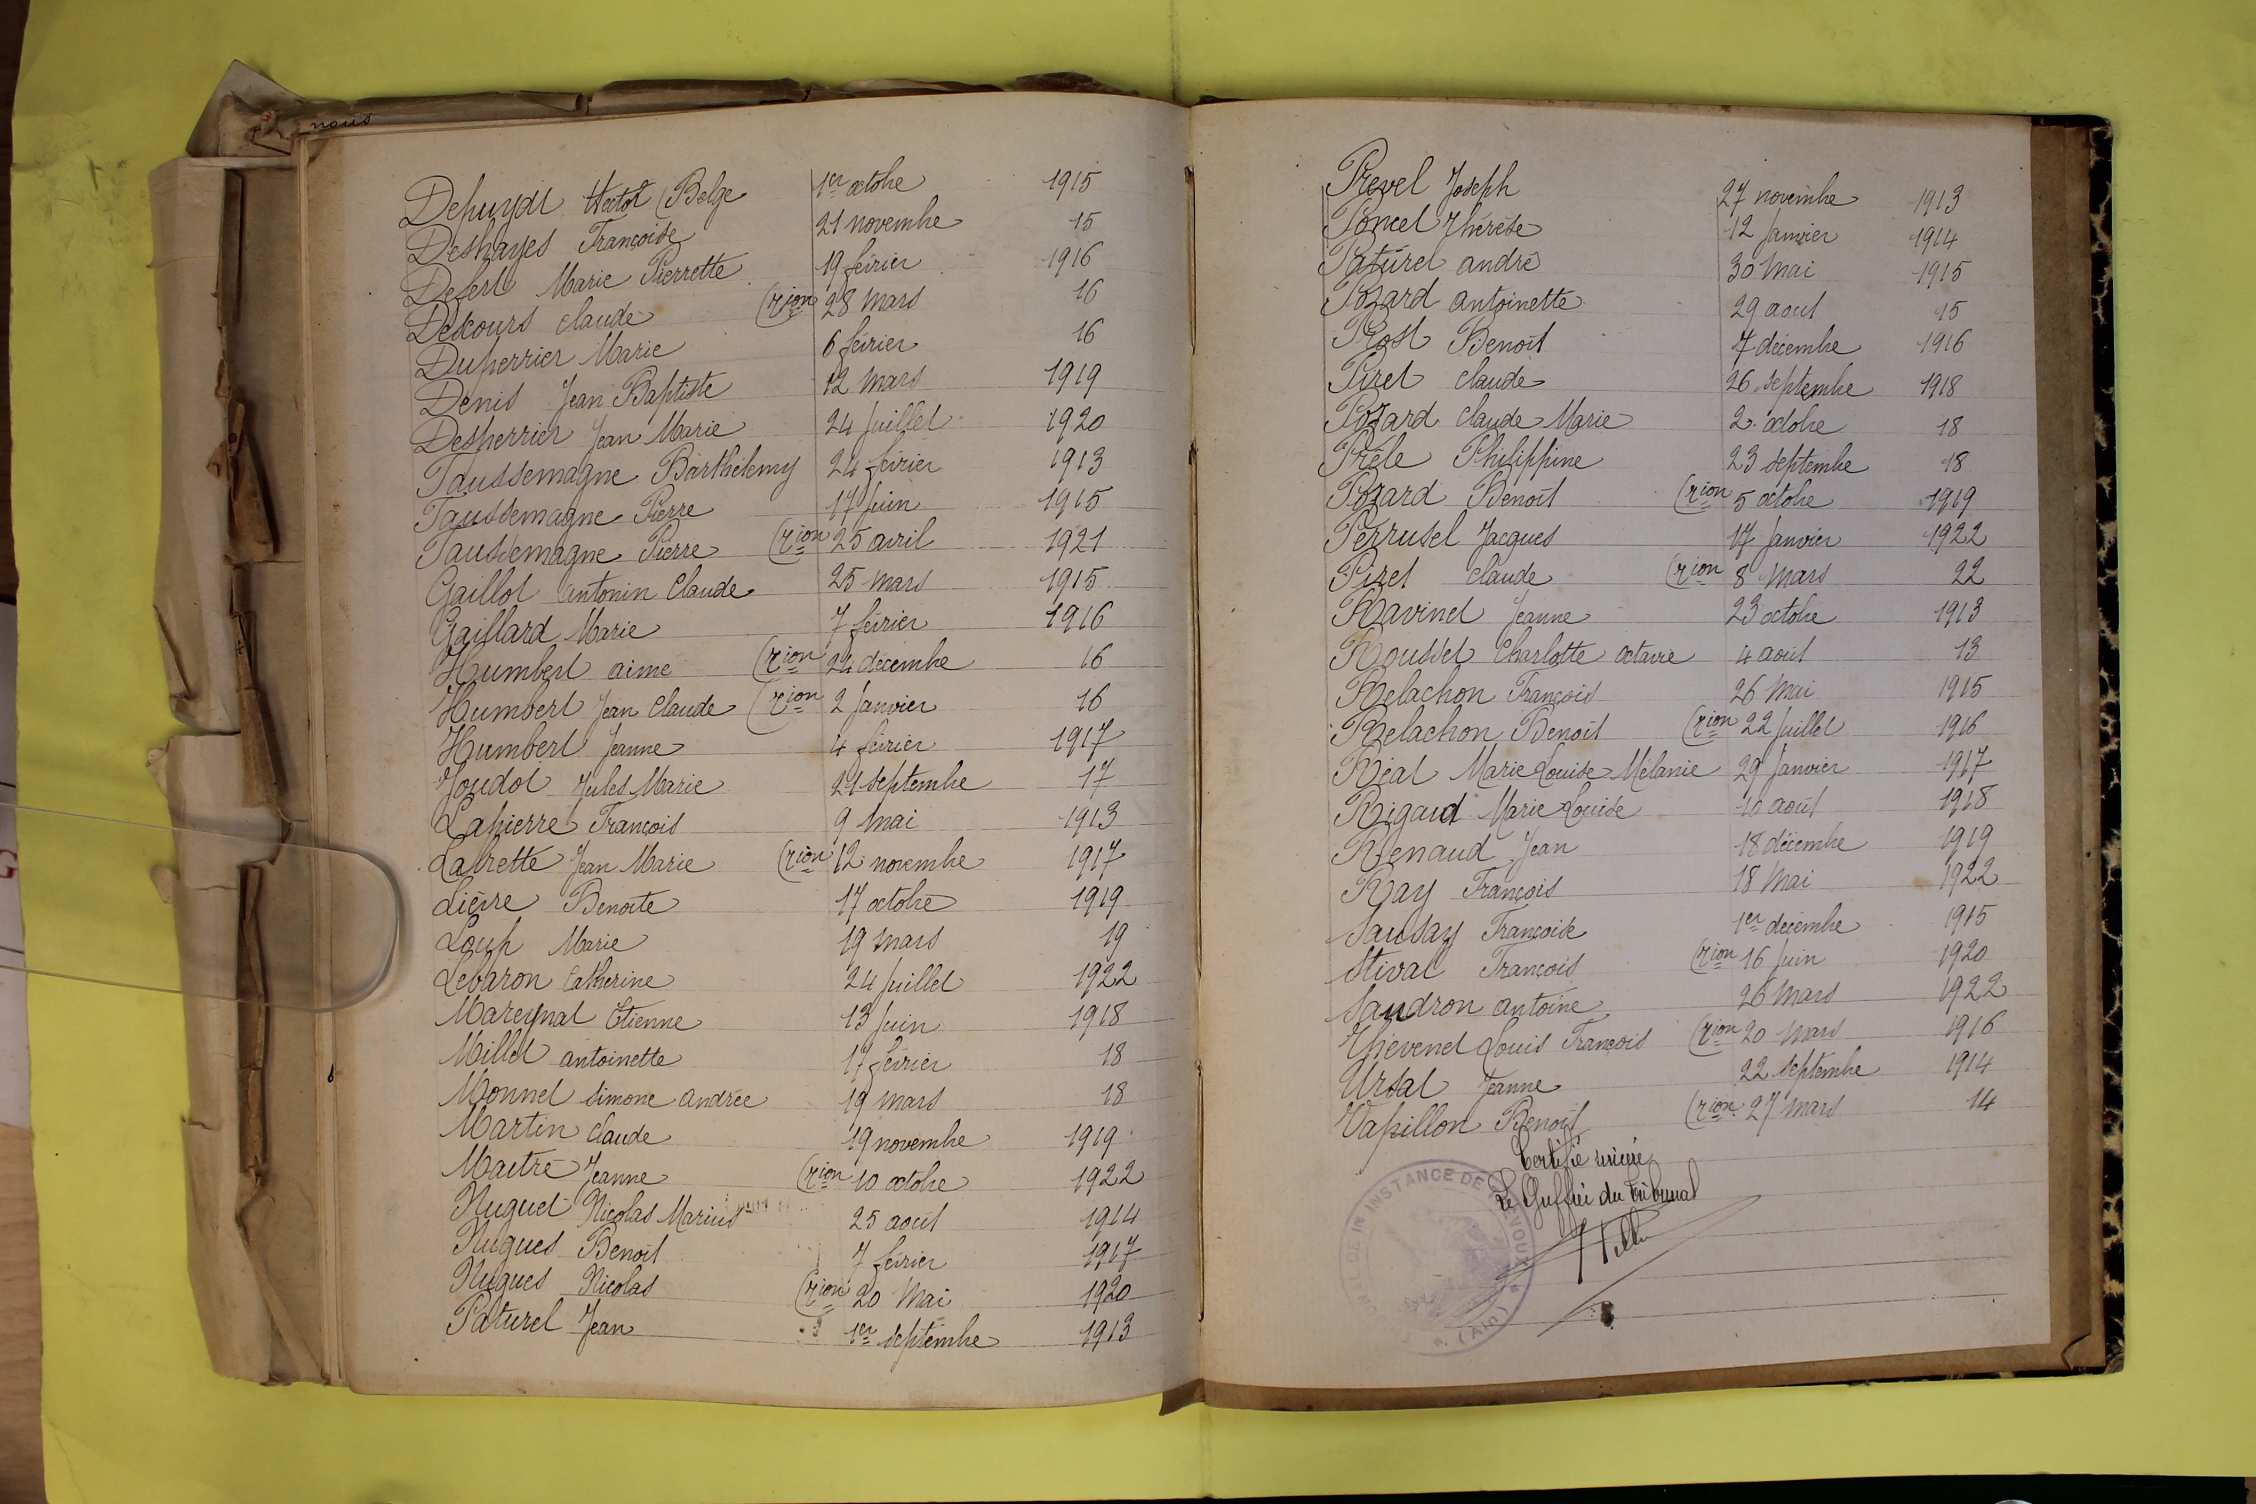 nous
Depuydt Hector (Belge 1er octobre 1915
Deshayes Françoise 21 novembre 15
Defert Marie Pierrette 19 février 1916
Descours Claude (rion 28 mars 16
Duperrier Marie 6 février 16
Denis Jean Baptiste 12 mars 1919
Desperrier Jean Marie 24 juillet 1920
Faussemagne Barthélemy 24 février 1913
Faussemagne Pierre 17 juin 1915
Faussemagne Pierre (rion 25 avril 1921
Gaillot Antonin Claude 25 mars 1915
Gaillard Marie 7 février 1916
Humbert aimé (rion 24 décembre 16
Humbert Jean Claude (rion 2 janvier 16
Humbert Jeanne 4 février 1917
Joudoi Jules Marie 21 septembre 17
Lapierre François 9 mai 1913
Labrette Jean Marie (rion 12 novembre 1917
Lièvre Benoite 17 octobre 1919
Loup Marie 19 mars 19
Levaron Catherine 24 juillet 1922
Mareynat Etienne 13 juin 1918
Millet antoinette 17 février 18
Monnet Simone andrée 19 mars 18
Martin Claude 19 novembre 1919
Maitre Jeanne (rion 10 octobre 1922
Nuguet Nicolas Marius 25 août 1914
Nugues Benoît 7 février 1917
Nugues Nicolas (rion 20 Mai 1920
Paturel Jean 1er septembre 1913
Prevel Joseph 27 novembre 1913
Poncet Thérèse 12 janvier 1914
Paturel andré 30 mai 1915
Pozard antoinette 29 aout 15
Prost Benoît 7 décembre 1916
Pizet claude 26 septembre 1918
Pozard Claude Marie 2 octobre 18
Prèle Philippine 23 septembre 18
Pozard Benoît (rion 5 octobre 1919
Perrusel Jacques 17 janvier 1922
Pizet claude (rion 8 mars 22
Ravinet Jeanne 23 octobre 1913
Rousset Charlotte octavie 4 août 13
Relachon François 26 Mai 1915
Relachon Benoît (rion 22 juillet 1916
Réal Marie Louise Mélanie 29 janvier 1917
Rigaud Marie Louise 10 août 1918
Renaud Jean 18 décembre 1919
Ray François 18 Mai 1922
Sausay Françoise 1er décembre 1915
Stival François (rion 16 juin 1920
Sandron antoine 26 mars 1922
Thevenet Louis François (rion 20 mars 1916
Ursat Jeanne 22 septembre 1914
Vapillon Benoît (rion 27 mars 14
Certifié sincère
Le Greffier du tribunal
INSTANCE DE
(Ain)